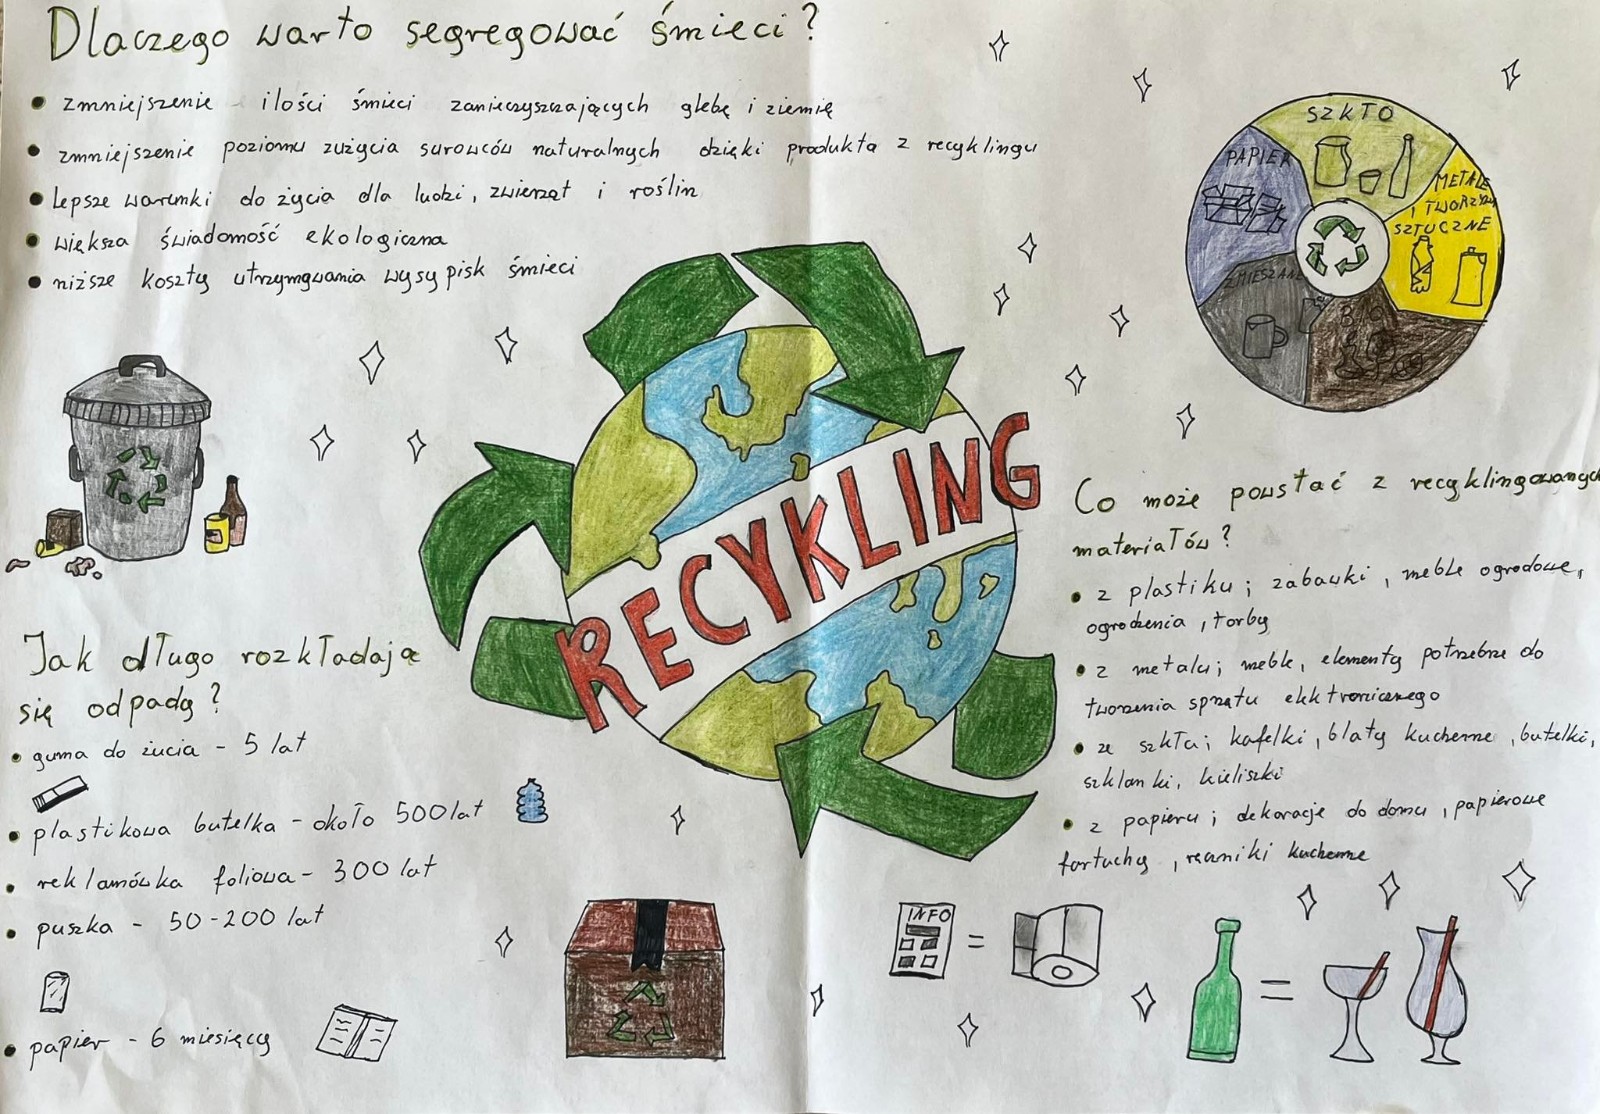 Dlaczego warto segregować śmieci?
• zmniejszenie ilości śmieci zanieczyszczających glebę i ziemię
• zmniejszenie poziomu zużycia surowców naturalnych dzięki produktą z recyklingu
• lepsze warunki do życia dla ludzi, zwierząt i roślin
• większa świadomość ekologiczna
• niższe koszty utrzymywania wysypisk śmieci
SZKŁO
PAPIER
METALE
I TWORZYWA
SZTUCZNE
ZMIESZANE
BIO
RECYKLING
Jak długo rozkładają
się odpady?
• guma do żucia - 5 lat
• plastikowa butelka - około 500 lat
• reklamówka foliowa - 300 lat
• puszka - 50-200 lat
• papier - 6 miesięcy
Co może powstać z recyklingowanych
materiałów?
• z plastiku; zabawki, meble ogrodowe,
ogrodzenia, torby
• z metalu; meble, elementy potrzebne do
tworzenia sprzętu elektronicznego
• ze szkła; kafelki, blaty kuchenne, butelki,
szklanki, kieliszki
• z papieru; dekoracje do domu, papierowe
fartuchy, ręczniki kuchenne
INFO
=
=